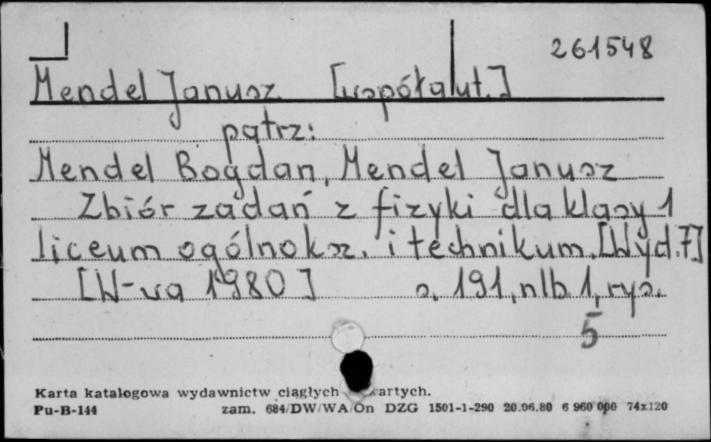 261548
Mendel Janusz [współaut.]
patrz:
Mendel Bogdan, Mendel Janusz
Zbiór zadań z fizyki dla klasy 1
liceum ogólnoksz. i technikum. [Wyd. 7]
[W-wa 1980] s. 191, nlb 1, rys.
5
Karta katalogowa wydawnictw ciągłych
Pu-B-144 zam. 684/DW/WA/On DZG 1501-1-290 20.06.80 6 960 000 74x120